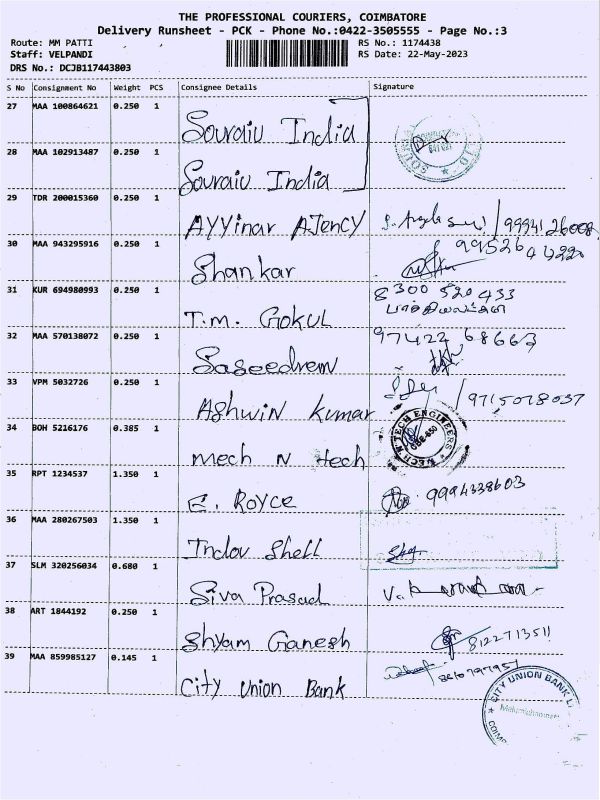 THE PROFESSIONAL COURIERS, COIMBATORE
Delivery Runsheet - PCK - Phone No.:0422-3505555 - Page No.:3
Route: MM PATTI
RS No.: 1174438
Staff: VELPANDI
RS Date: 22-May-2023
DRS No.: DCJB117443803
S No Consignment No Weight PCS Consignee Details Signature
27 MAA 100864621 0.250 1 Souraiu India
28 MAA 102913487 0.250 1 Souraiu India
29 TDR 200015360 0.250 1 Ayyinar AJency
30 MAA 943295916 0.250 1 Shankar
31 KUR 694980993 0.250 1 T.m. GOKUL 8300 520 433
32 MAA 570138072 0.250 1 97422 68663
33 VPM 5032726 0.250 1 Ashwin Kumar 9715078037
34 BOH 5216176 0.385 1 Mech N tech MECH N TECH ENGINEERS
35 RPT 1234537 1.350 1 E. ROYCE 9994338603
36 MAA 280267503 1.350 1 Indov Shell
37 SLM 320256034 0.680 1 Siva Prasad
38 ART 1844192 0.250 1 Shyam Ganesh 8122713511
39 MAA 859985127 0.145 1 City Union Bank
CITY UNION BANK